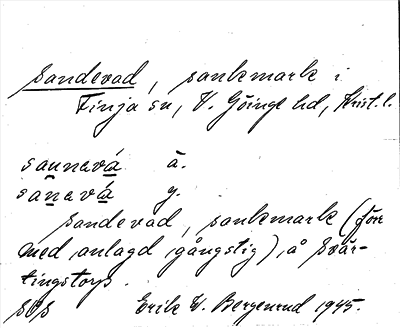 Sandevad, sankmark i
Finja sn, V. Göinge hd, Krist. l.
saunavá ä.
sanavá y.
Sandevad, sankmark (förr
med anlagd gångstig), å Svär-
tingstorp.
SOS Erik W. Bergenrud 1945.